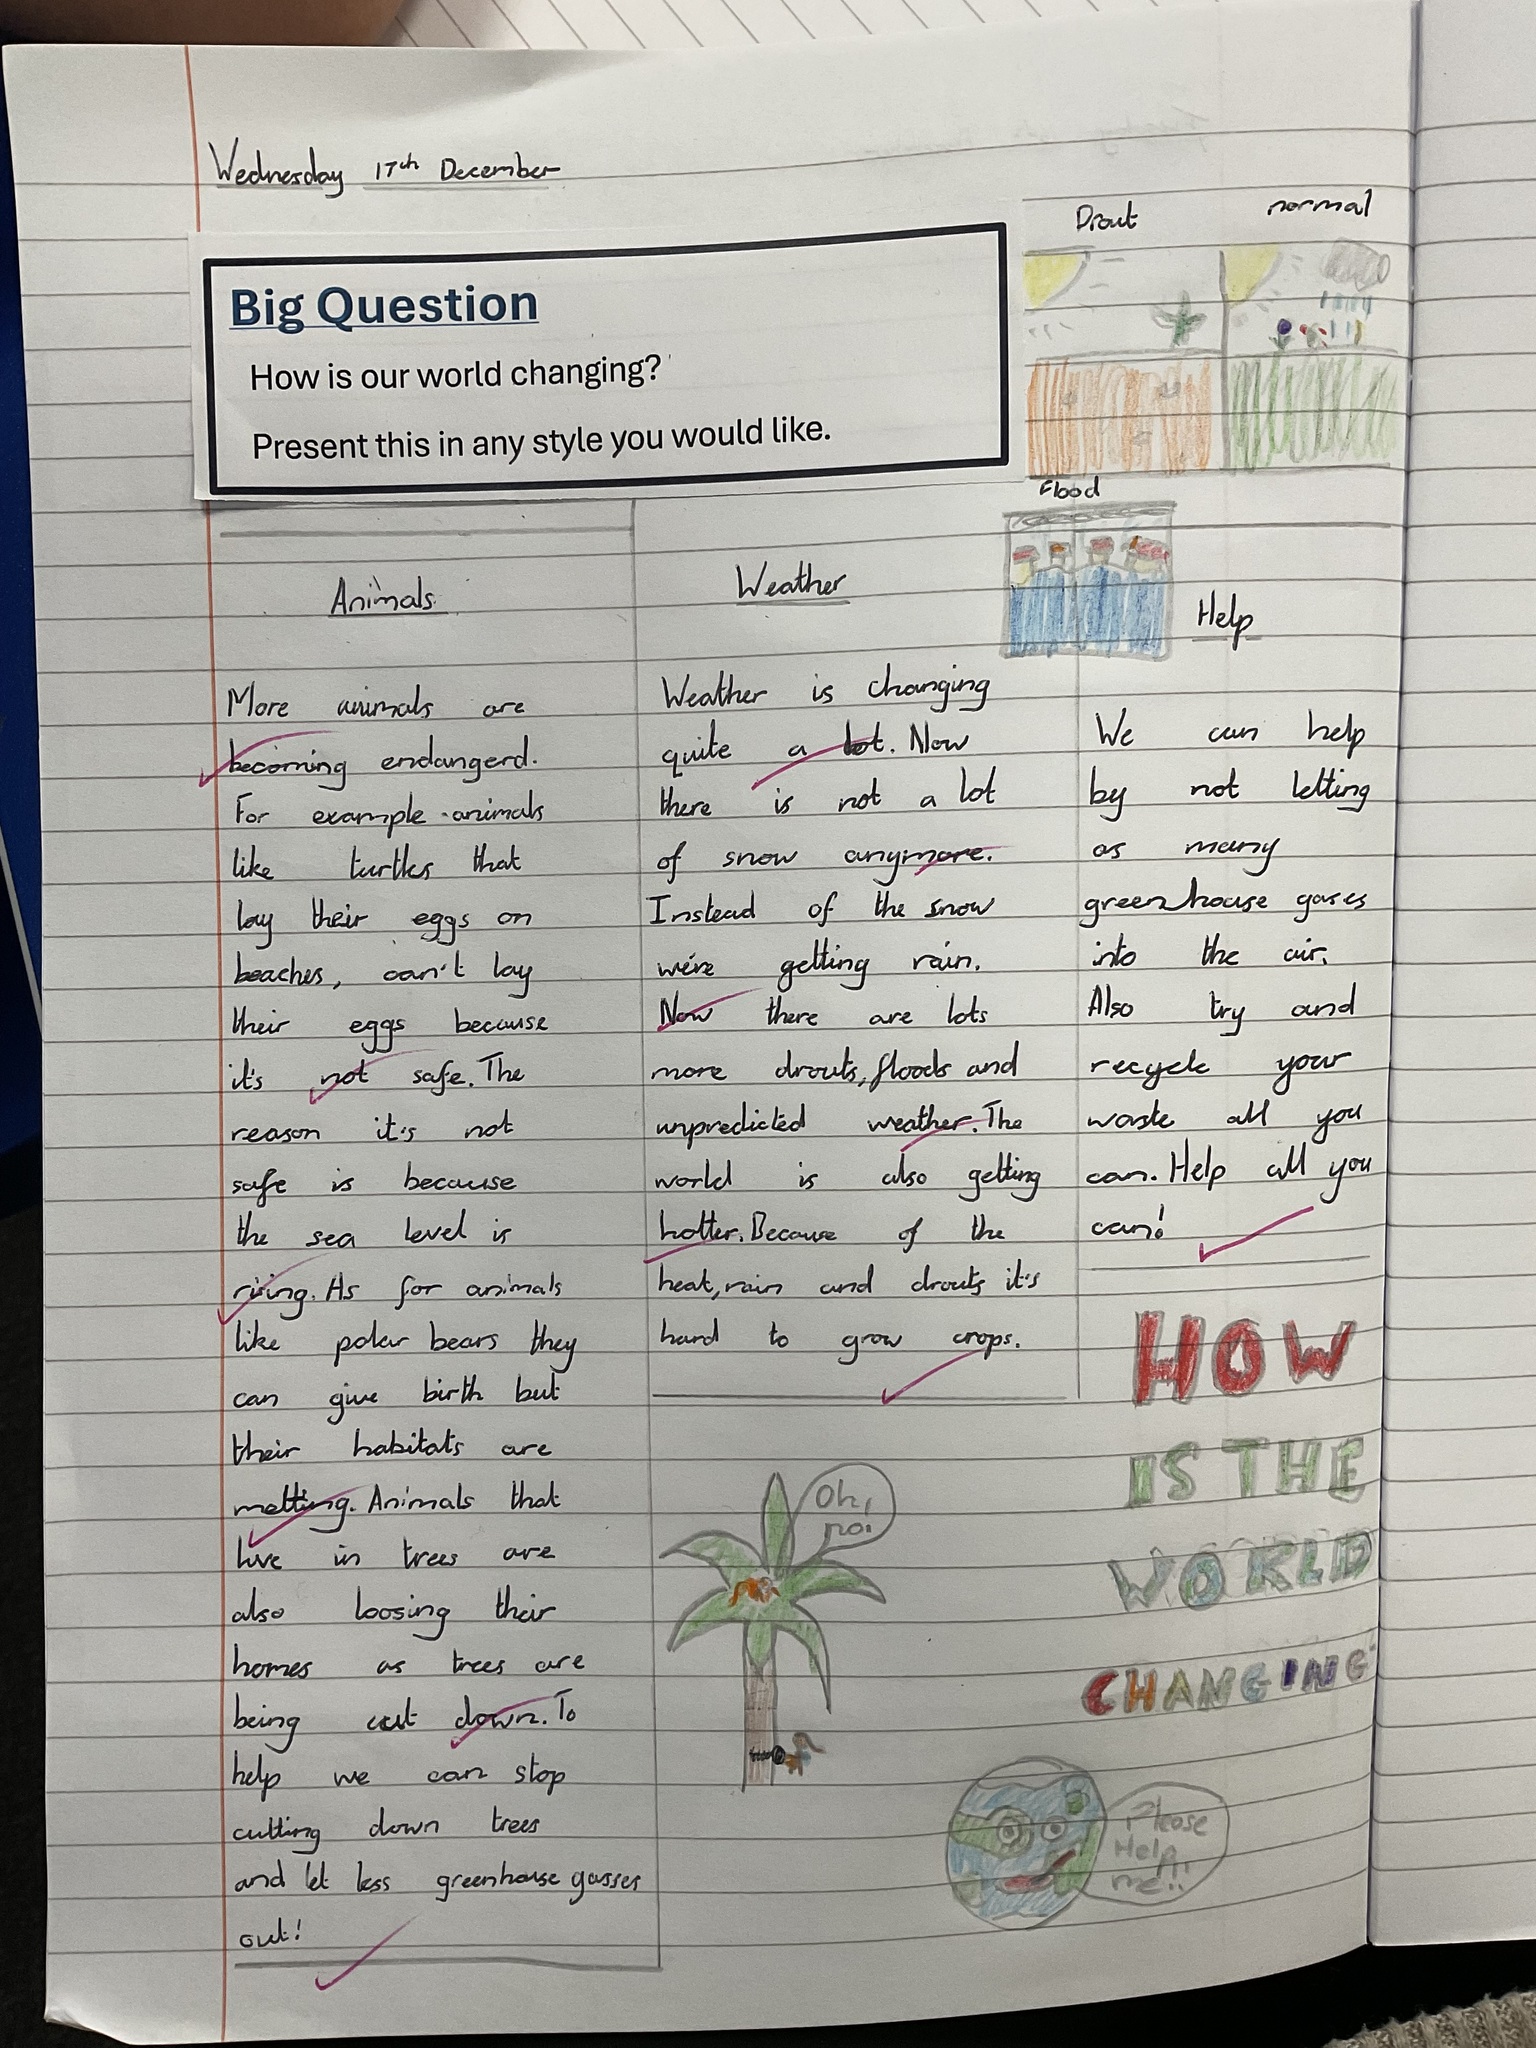 Wednesday 17th December
Big Question
How is our world changing?
Present this in any style you would like.
Drout
normal
Flood
Animals
More animals are
becoming endangerd.
For example animals
like turtles that
lay their eggs on
beaches, can't lay
their eggs because
it's not safe. The
reason it's not
safe is because
the sea level is
rising. As for animals
like polar bears they
can give birth but
their habitats are
melting. Animals that
live in trees are
also loosing their
homes as trees are
being cut down. To
help we can stop
cutting down trees
and let less greenhouse gasses
out!
Weather
Weather is changing
quite a lot. Now
there is not a lot
of snow anymore.
Instead of the snow
we're getting rain.
Now there are lots
more drouts, floods and
unpredicted weather. The
world is also getting
hotter. Because of the
heat, rain and drouts it's
hard to grow crops.
Help
We can help
by not letting
as many
greenhouse gases
into the air.
Also try and
recycle your
waste all you
can. Help all you
can!
Oh,
no!
HOW
IS THE
WORLD
CHANGING
Please
Help
me!!